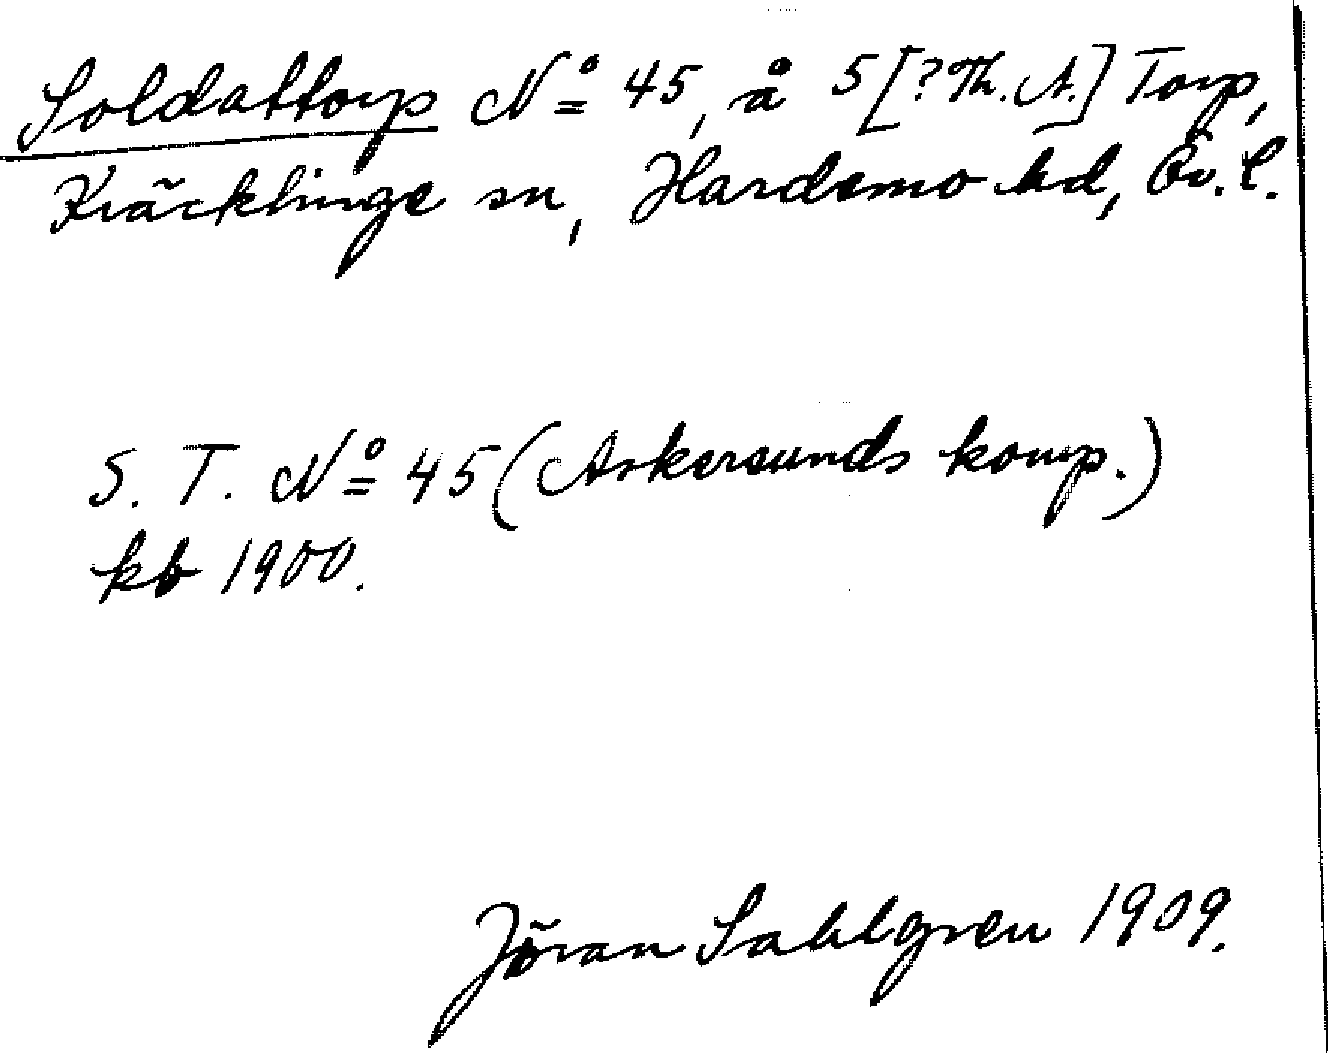 Soldattorp Nº 45, å 5 [?Th.A.] Torp,
Kräcklinge sn, Hardemo hd, Ör. l.
S. T. Nº 45 (Askersunds komp.)
kb 1900.
Jöran Sahlgren 1909.